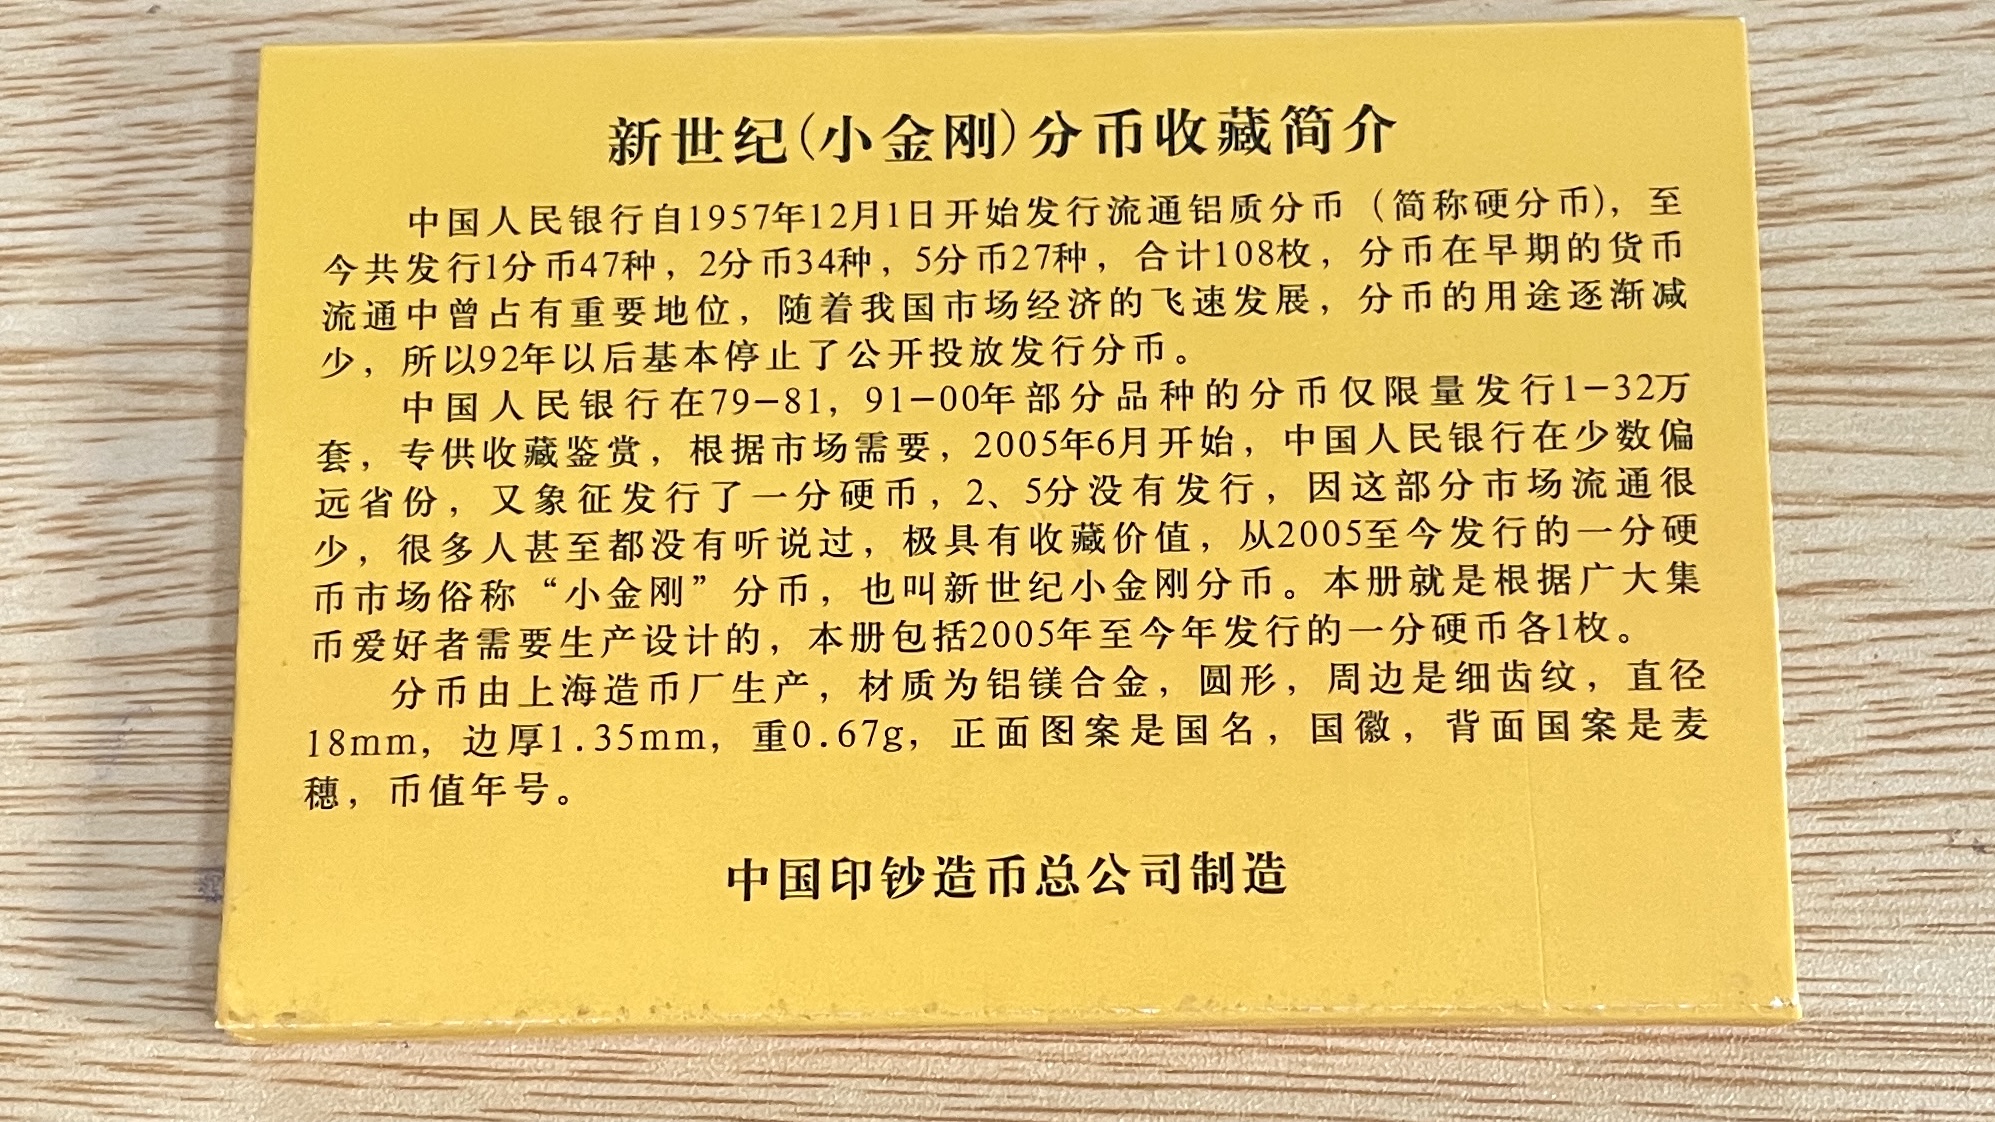 新世纪(小金刚)分币收藏简介
中国人民银行自1957年12月1日开始发行流通铝质分币（简称硬分币)，至
今共发行1分币47种，2分币34种，5分币27种，合计108枚，分币在早期的货币
流通中曾占有重要地位，随着我国市场经济的飞速发展，分币的用途逐渐减
少，所以92年以后基本停止了公开投放发行分币。
中国人民银行在79-81，91-00年部分品种的分币仅限量发行1-32万
套，专供收藏鉴赏，根据市场需要，2005年6月开始，中国人民银行在少数偏
远省份，又象征发行了一分硬币，2、5分没有发行，因这部分市场流通很
少，很多人甚至都没有听说过，极具有收藏价值，从2005至今发行的一分硬
币市场俗称“小金刚”分币，也叫新世纪小金刚分币。本册就是根据广大集
币爱好者需要生产设计的，本册包括2005年至今年发行的一分硬币各1枚。
分币由上海造币厂生产，材质为铝镁合金，圆形，周边是细齿纹，直径
18mm，边厚1.35mm，重0.67g，正面图案是国名，国徽，背面国案是麦
穗，币值年号。
中国印钞造币总公司制造